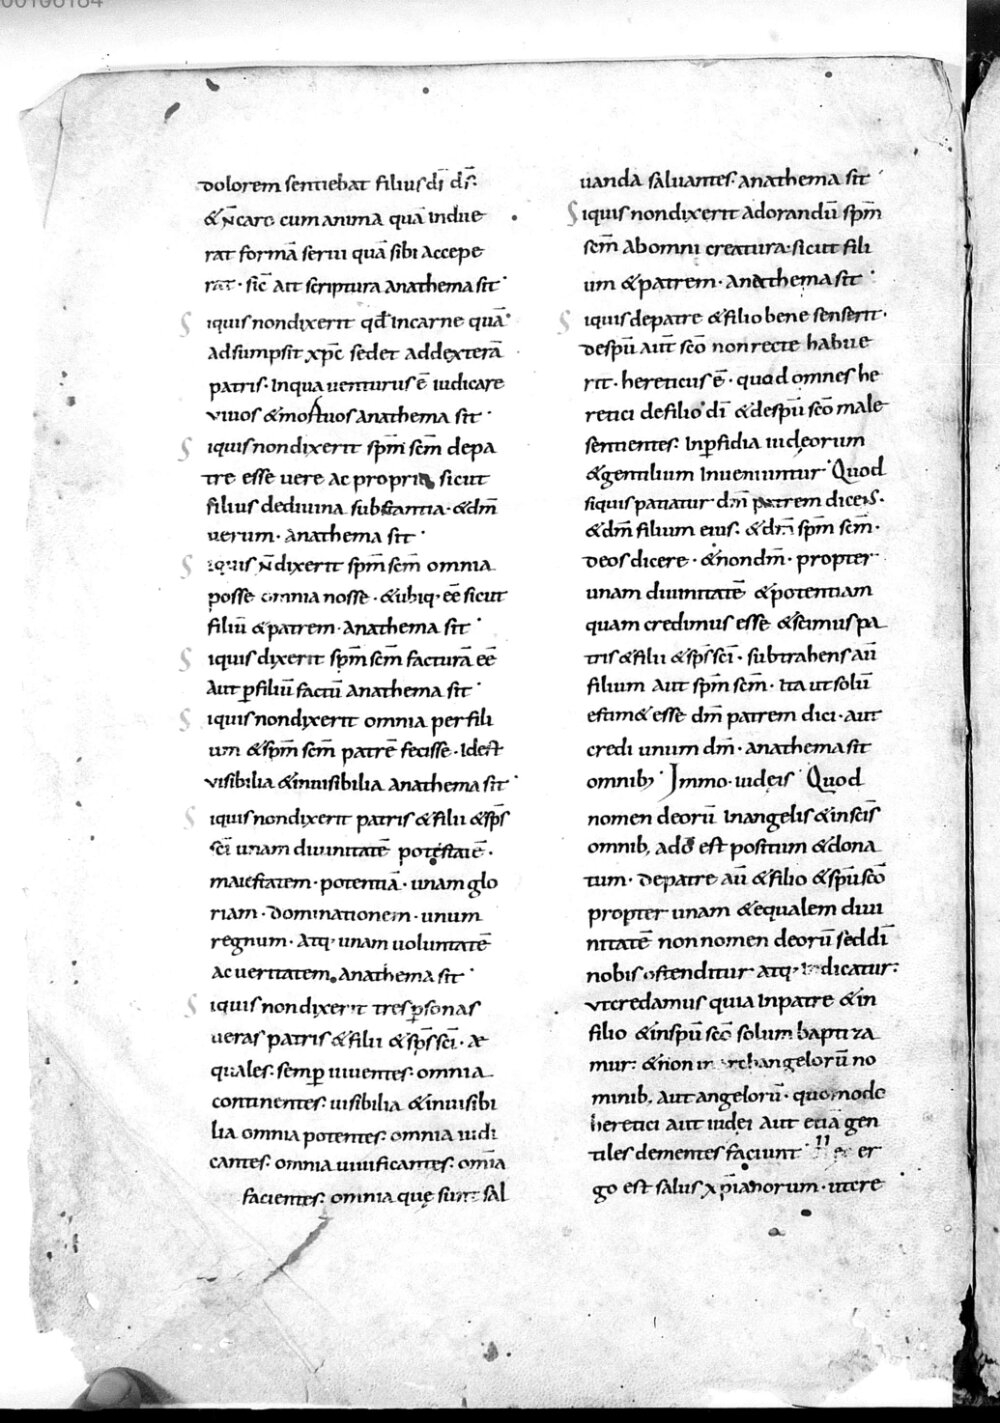 dolorem sentiebat filius dī d̄s.
& n̄ caro cum anima quā indue
rat formā serui quā sibi accepe
rat. sic̄ ait scriptura anathema sit.
Siquis non dixerit qd̄ incarne quā
adsumpsit xp̄c sedet addexterā
patris. Inqua uenturus ē iudicare
viuos & mortuos anathema sit.
Siquis non dixerit sp̄m sc̄m depa
tre esse uere ac propriae sicut
filius dediuina substantia. & dm̄
uerum. anathema sit.
Siquis n̄ dixerit sp̄m sc̄m omnia
posse omnia nosse. & ubiq; eē sicut
filiū & patrem. anathema sit.
Siquis dixerit sp̄m sc̄m facturā eē
aut p̄ filiū factū anathema sit.
Siquis non dixerit omnia per fili
um & sp̄m sc̄m patrē fecisse. Idest
visibilia & inuisibilia anathema sit.
Siquis non dixerit patris & filii & sp̄s
sc̄i unam diuinitatē potestatē.
maiestatem. potentiā. unam glo
riam. dominationem. unum
regnum. atq; unam uoluntatē
ac ueritatem. anathema sit.
Siquis non dixerit tres p̄sonas
ueras patris & filii & sp̄s sc̄i. æ
quales. semp̄ uiuentes. omnia
continentes. uisibilia & inuisibi
lia omnia potentes. omnia iudi
cantes. omnia uiuificantes. om̄ia
facientes. omnia quę sunt sal
uanda saluantes. anathema sit
Siquis non dixerit adorandū sp̄m
sc̄m abomni creatura. sicut fili
um & patrem. anathema sit.
Siquis depatre & filio bene senserit.
despū aut̄ sc̄o non recte habue
rit. hereticus ē. quod omnes he
retici defilio dī & despū sc̄o male
sentientes. Inp̄fidia iudeorum
& gentilium Inueniuntur. Quod
siquis patiatur dm̄ patrem dicens.
& dm̄ filium eius. & dm̄ sp̄m sc̄m.
deos dicere. & non dm̄. propter
unam diuinitatē & potentiam
quam credimus esse & scimus pa
tris & filii & sp̄s sc̄i. subtrahens aū
filium aut sp̄m sc̄m. Ita ut solū
estim& esse dm̄ patrem dici. aut
credi unum dm̄. anathema sit
omnib; Immo. iudeis Quod
nomen deorū Inangelis & in sc̄is
omnib; add̄ est positum & dona
tum. depatre aū & filio & spū sc̄o
propter unam & equalem diui
nitatē non nomen deorū sed dī
nobis ostenditur atq; Indicatur.
vt credamus quia Inpatre & in
filio & inspū sc̄o solum baptiza
mur. & non in archangelorū no
minib; aut angelorū. quomodo
heretici aut iudei aut etiā gen
tiles dementes faciunt Hec er
go est salus xp̄ianorum. utcre